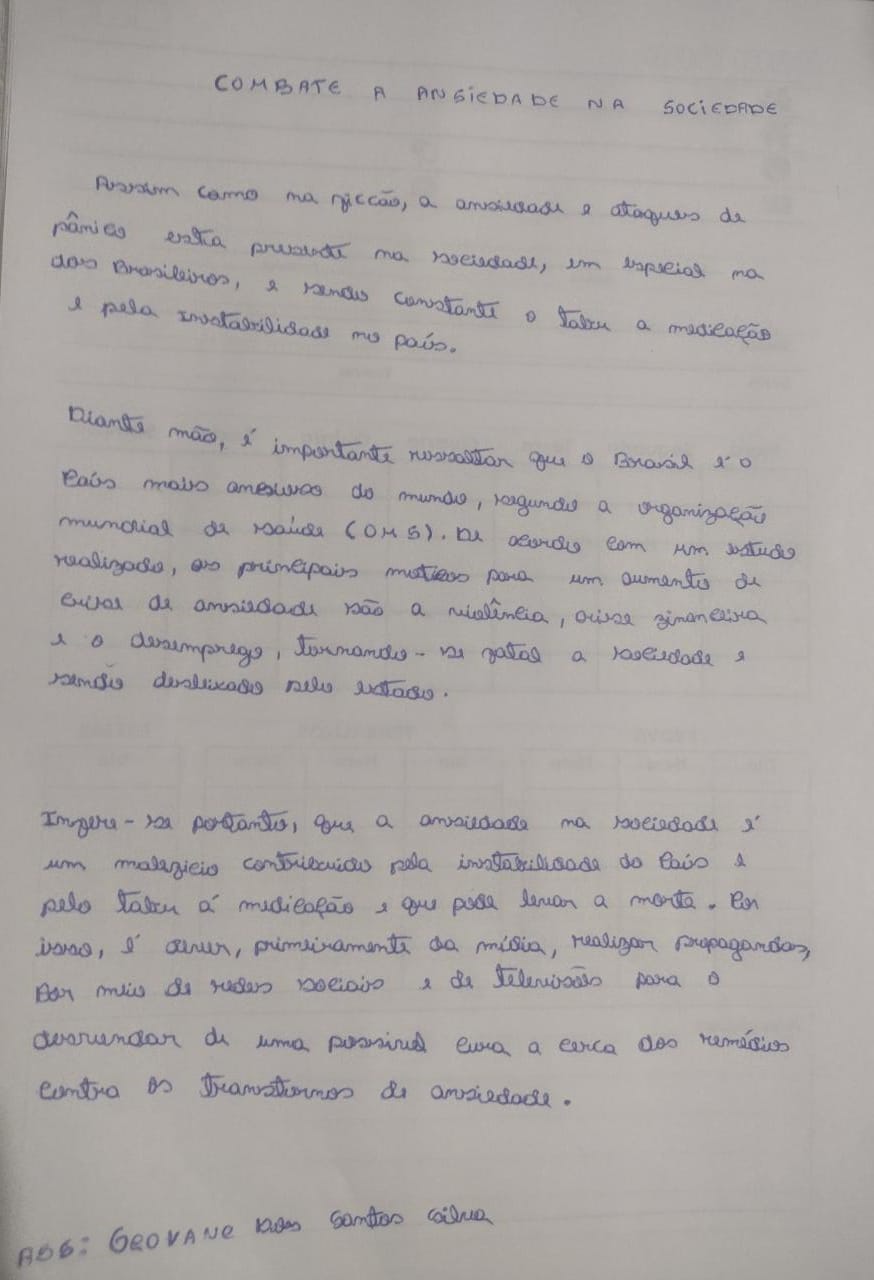 COMBATE A ANSIEDADE NA SOCIEDADE
Assim como na ficcão, a ansiedade e ataques de
pânico esta presente na sociedade, em especial na
dos Brasileiros, e sendo constante o tabu a medicação
e pela instabilidade no país.
Diante mão, é importante ressaltar que o Brasil é o
País mais ansioso do mundo, segundo a organização
mundial de saúde (OMS). De acordo com um estudo
realizado, os principais motivos para um aumento de
crises de ansiedade são a violência, crise financeira
e o desemprego, tornando-se fatal a sociedade e
sendo desleixado pelo estado.
Infere-se portanto, que a ansiedade na sociedade é
um maleficio contribuido pela instabilidade do País e
pelo tabu á medicação e que pode levar a morte. Por
isso, é dever, primeiramente da mídia, realizar propagandas,
Por meio de redes sociais e de televisão para o
desvendar de uma possivel cura a cerca dos remédios
contra os transtornos de ansiedade.
ASS: GEOVANE dos Santos Silva